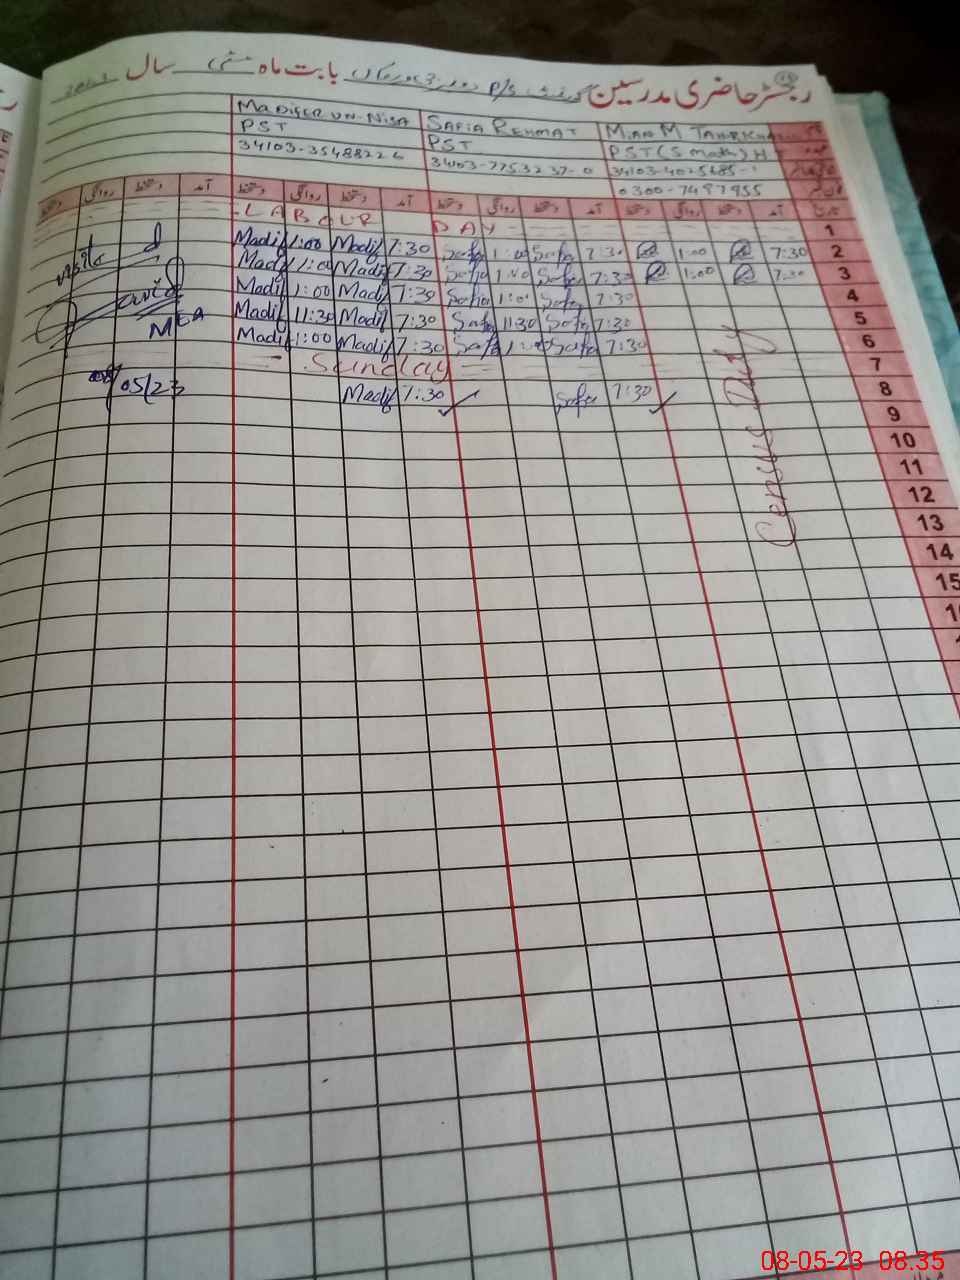 رجسٹر حاضری مدرسین گورنمنٹ P/S بابت ماہ مئی سال
MADIHER UN-NISA SAFIA REHMAT MIAN M TAHIR
PST PST PST (S math) H
34103-3548822 6 34103-7753237-0 34103-4025685-1
0300-7487955
دستخط روانگی دستخط آمد دستخط روانگی دستخط آمد دستخط روانگی دستخط آمد دستخط روانگی دستخط آمد تاریخ
LABOUR DAY 1
Madif 1:00 Madif 7:30 Safia 1:00 Safia 7:30 1:00 7:30 2
Madif 1:00 Madif 7:30 Safia 1:00 Safia 7:30 1:00 7:30 3
Madif 1:00 Madif 7:30 Safia 1:00 Safia 7:30 4
Madif 11:30 Madif 7:30 Safia 11:30 Safia 7:30 5
MEA
Madif 1:00 Madif 7:30 Safia 1:00 Safia 7:30 6
Sunday 7
05/23 Madif 7:30 Safia 7:30 8
Census Duty
9
10
11
12
13
14
15
08-05-23 08:35